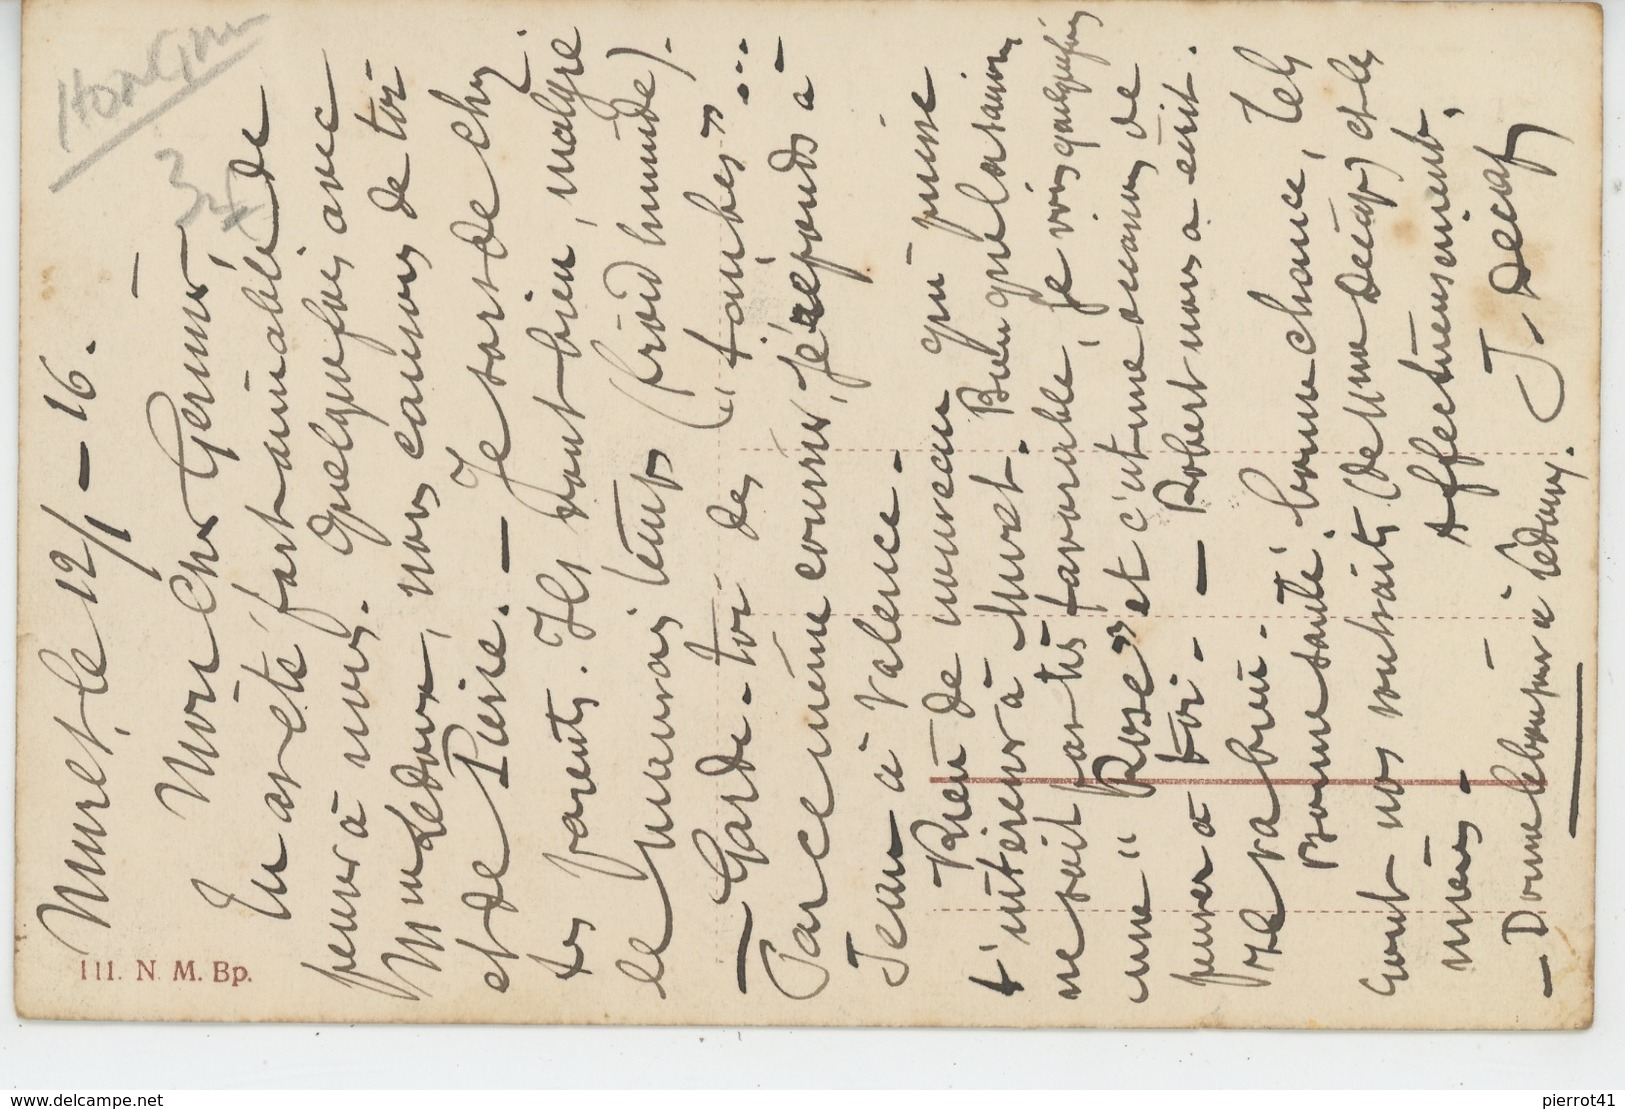 Muret, le 12/1 – 16. –
Mon cher Germin,
Tu as été fort aimable de
penser à nous. Quelquefois avec
Mme Ledoux, nous causons de toi
et de Pierre. – Je sors de chez
tes parents. Ils vont bien, malgré
le mauvais temps (froid humide). –
– Garde-toi des " tombes " ...
Par ce même courrier, je réponds à –
Jean à Valence. –
Rien de nouveau qui puisse
t'intéresser à Muret. Bien que la saison
ne soit pas très favorable, je vois quelquefois
une " Rose " et c'est une occasion de
penser à toi. – – Robert nous a écrit.
Il va bien. –
Bonne santé, bonne chance, tels
sont nos souhaits (de Mme Décap) et les
miens. –
Affectueusement,
J. Décap
– Donne le bonjour à Lédoux. –
111. N. M. Bp.
Hongrie
3
www.delcampe.net
pierrot41